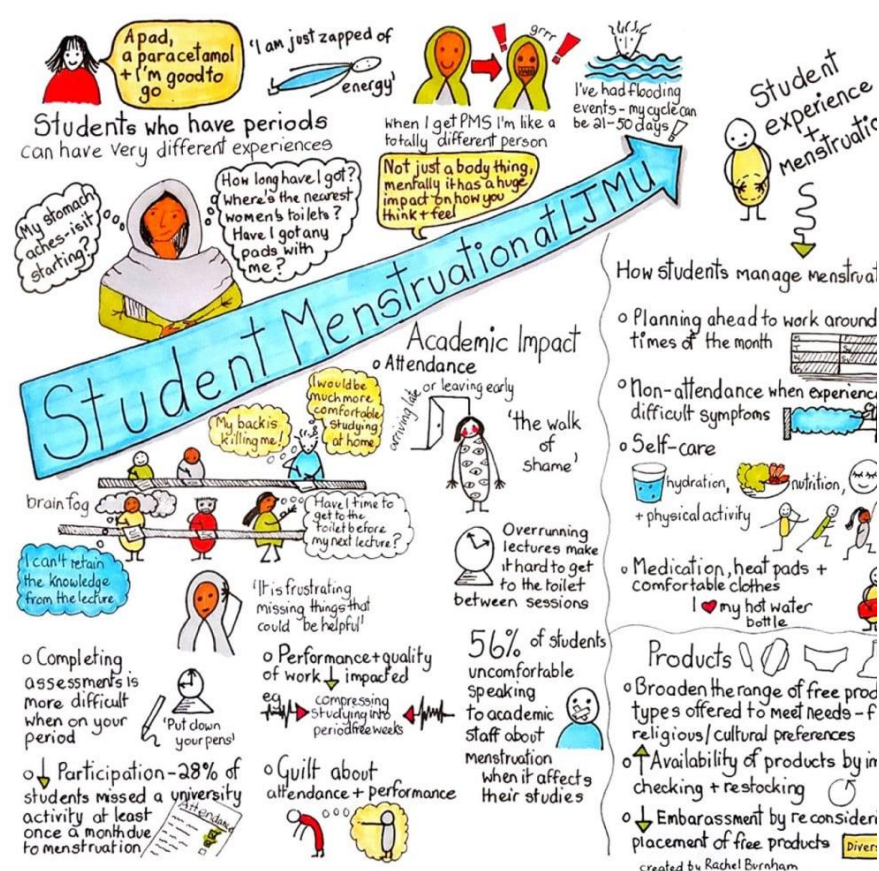 A pad,
a paracetamol
+ I'm good to
go
'I am just zapped of
energy'
grrr
Students who have periods
can have very different experiences
when I get PMS I'm like a
totally different person
I've had flooding
events - my cycle can
be 21-50 days!
Student
experience
+
Menstruation
My stomach
aches - is it
starting?
How long have I got?
Where's the nearest
women's toilets?
Have I got any
pads with
me?
Not just a body thing,
mentally it has a huge
impact on how you
think + feel
Student Menstruation at LJMU
Academic Impact
Attendance
arriving late
or leaving early
'the walk
of
shame'
My back is
killing me!
I would be
much more
comfortable
studying
at home
brain fog
Have I time to
get to the
toilet before
my next lecture?
I can't retain
the knowledge
from the lecture
'It is frustrating
missing things that
could be helpful'
Overrunning
lectures make
it hard to get
to the toilet
between sessions
Completing
assessments is
more difficult
when on your
period
'Put down
your pens'
Performance + quality
of work ↓ impacted
eg
compressing
studying into
period free weeks
56% of students
uncomfortable
speaking
to academic
staff about
Menstruation
when it affects
their studies
↓ Participation - 28% of
students missed a university
activity at least
once a month due
to menstruation
Attendance
Guilt about
attendance + performance
How students manage Menstruat
Planning ahead to work around
times of the month
Non-attendance when experienc
difficult symptoms
Self-care
hydration,
nutrition,
+ physical activity
Medication, heat pads +
comfortable clothes
I ♥ my hot water
bottle
Products
Broaden the range of free prod
types offered to meet needs - f
religious/cultural preferences
↑ Availability of products by im
checking + restocking
↓ Embarassment by reconsideri
placement of free products
Divers
created by Rachel Burnham